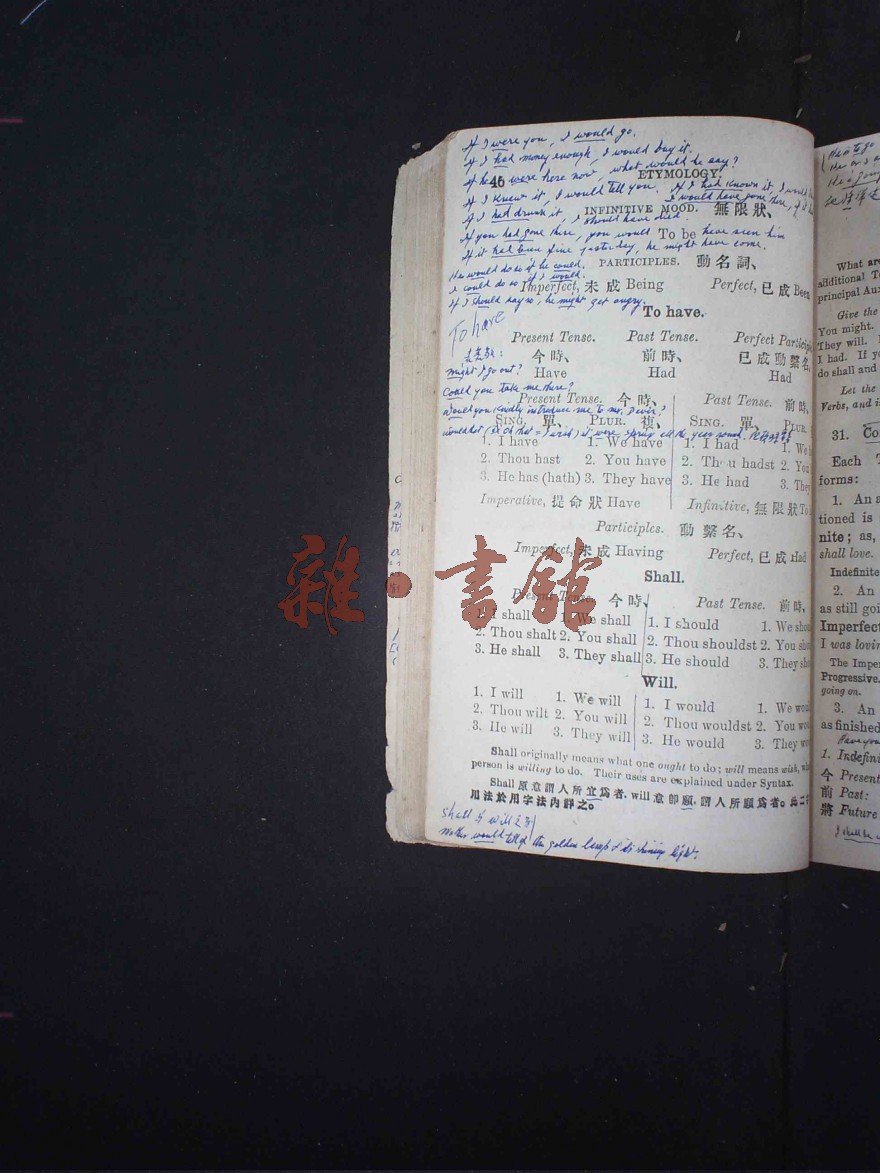 If I were you, I would go.
If I had money enough, I would buy it.
If he were here now, what would he say?
46 ETYMOLOGY.
If I knew it, I would tell you. If I had known it I would
I would have gone there, if
If I had drunk it, I should have died.
INFINITIVE MOOD. 無限狀、
If you had gone there, you would have seen him
To be
If it had been fine yesterday, he might have come.
He would do so if he could.
PARTICIPLES. 動名詞、
I could do so if I would.
Imperfect, 未成 Being Perfect, 已成 Been
If I should say so, he might get angry.
To have.
To have
Present Tense. Past Tense. Perfect Participle
今時、 前時、 已成動繫名,
Might I go out?
Have Had Had
Could you take me there?
Present Tense. 今時、 Past Tense. 前時,
Would you kindly introduce me to Mr.
SING. 單、 PLUR. 複、 SING. 單、 PLUR.
it were spring all the year round.
1. I have 1. We have 1. I had 1. We h
2. Thou hast 2. You have 2. Thou hadst 2. You
3. He has (hath) 3. They have 3. He had 3. They
Imperative, 提命狀 Have Infinitive, 無限狀 To
Participles. 動繫名、
Imperfect, 未成 Having Perfect, 已成 Had
Shall.
Present Tense. 今時、 Past Tense. 前時,
1. I shall 1. We shall 1. I should 1. We shou
2. Thou shalt 2. You shall 2. Thou shouldst 2. You sho
3. He shall 3. They shall 3. He should 3. They sho
Will.
1. I will 1. We will 1. I would 1. We wou
2. Thou wilt 2. You will 2. Thou wouldst 2. You wou
3. He will 3. They will 3. He would 3. They wo
Shall originally means what one ought to do; will means wish, wh
person is willing to do. Their uses are explained under Syntax.
Shall 原意謂人所宜爲者. will 意卽願, 謂人所願爲者。此二字
用法於用字法內詳之。
shall 與 will 之別
Mother would tell of the golden lamp of its shining light.
雜·書館
He is to go
What are
additional Te
principal Aux
Give the
You might.
They will.
I had. If yo
do shall and
Let the
Verbs, and i
31. Co
Each T
forms:
1. An a
tioned is
nite; as,
shall love.
Indefinite
2. An
as still goi
Imperfect
I was lovin
The Impe
Progressive.
going on.
3. An
as finished
1. Indefini
今 Present
前 Past:
將 Future
I shall be